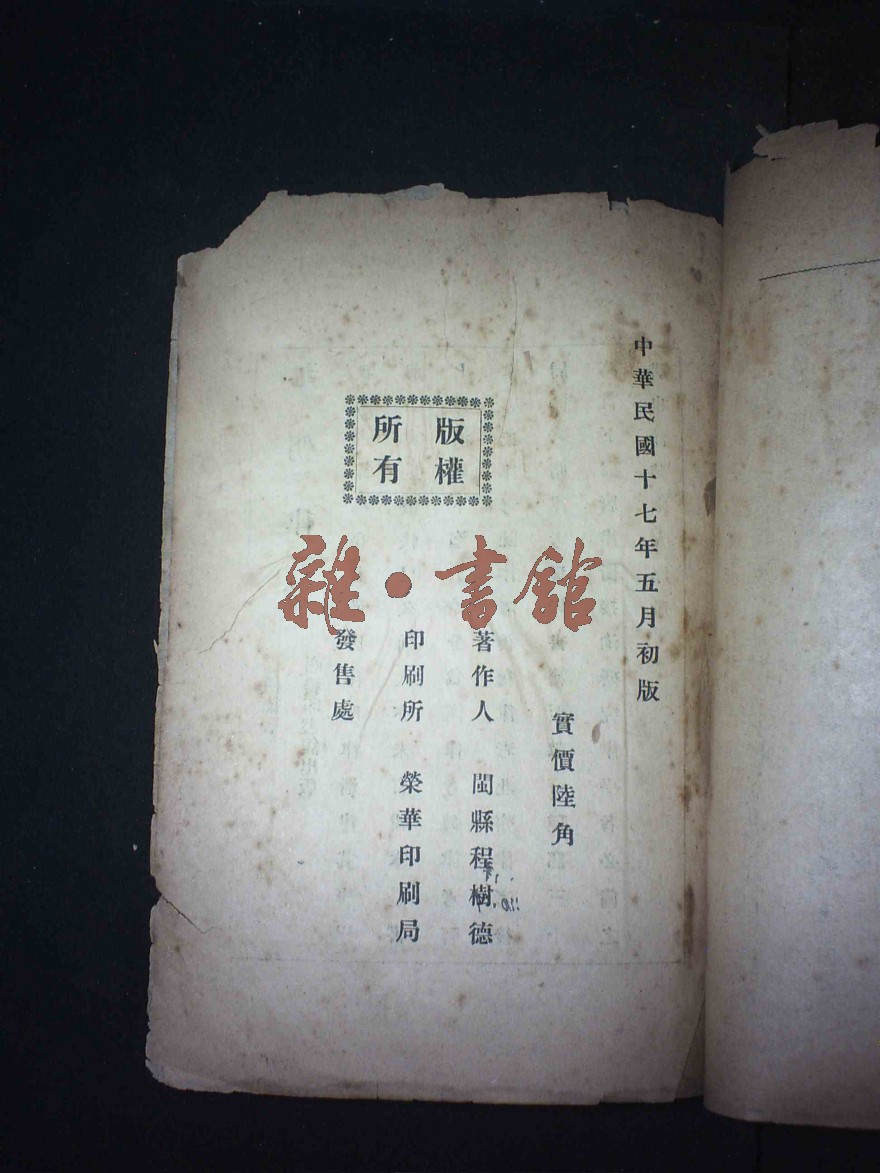 中華民國十七年五月初版
實價陸角
版權
所有
著作人 閩縣程樹德
印刷所 榮華印刷局
發售處
雜·書館